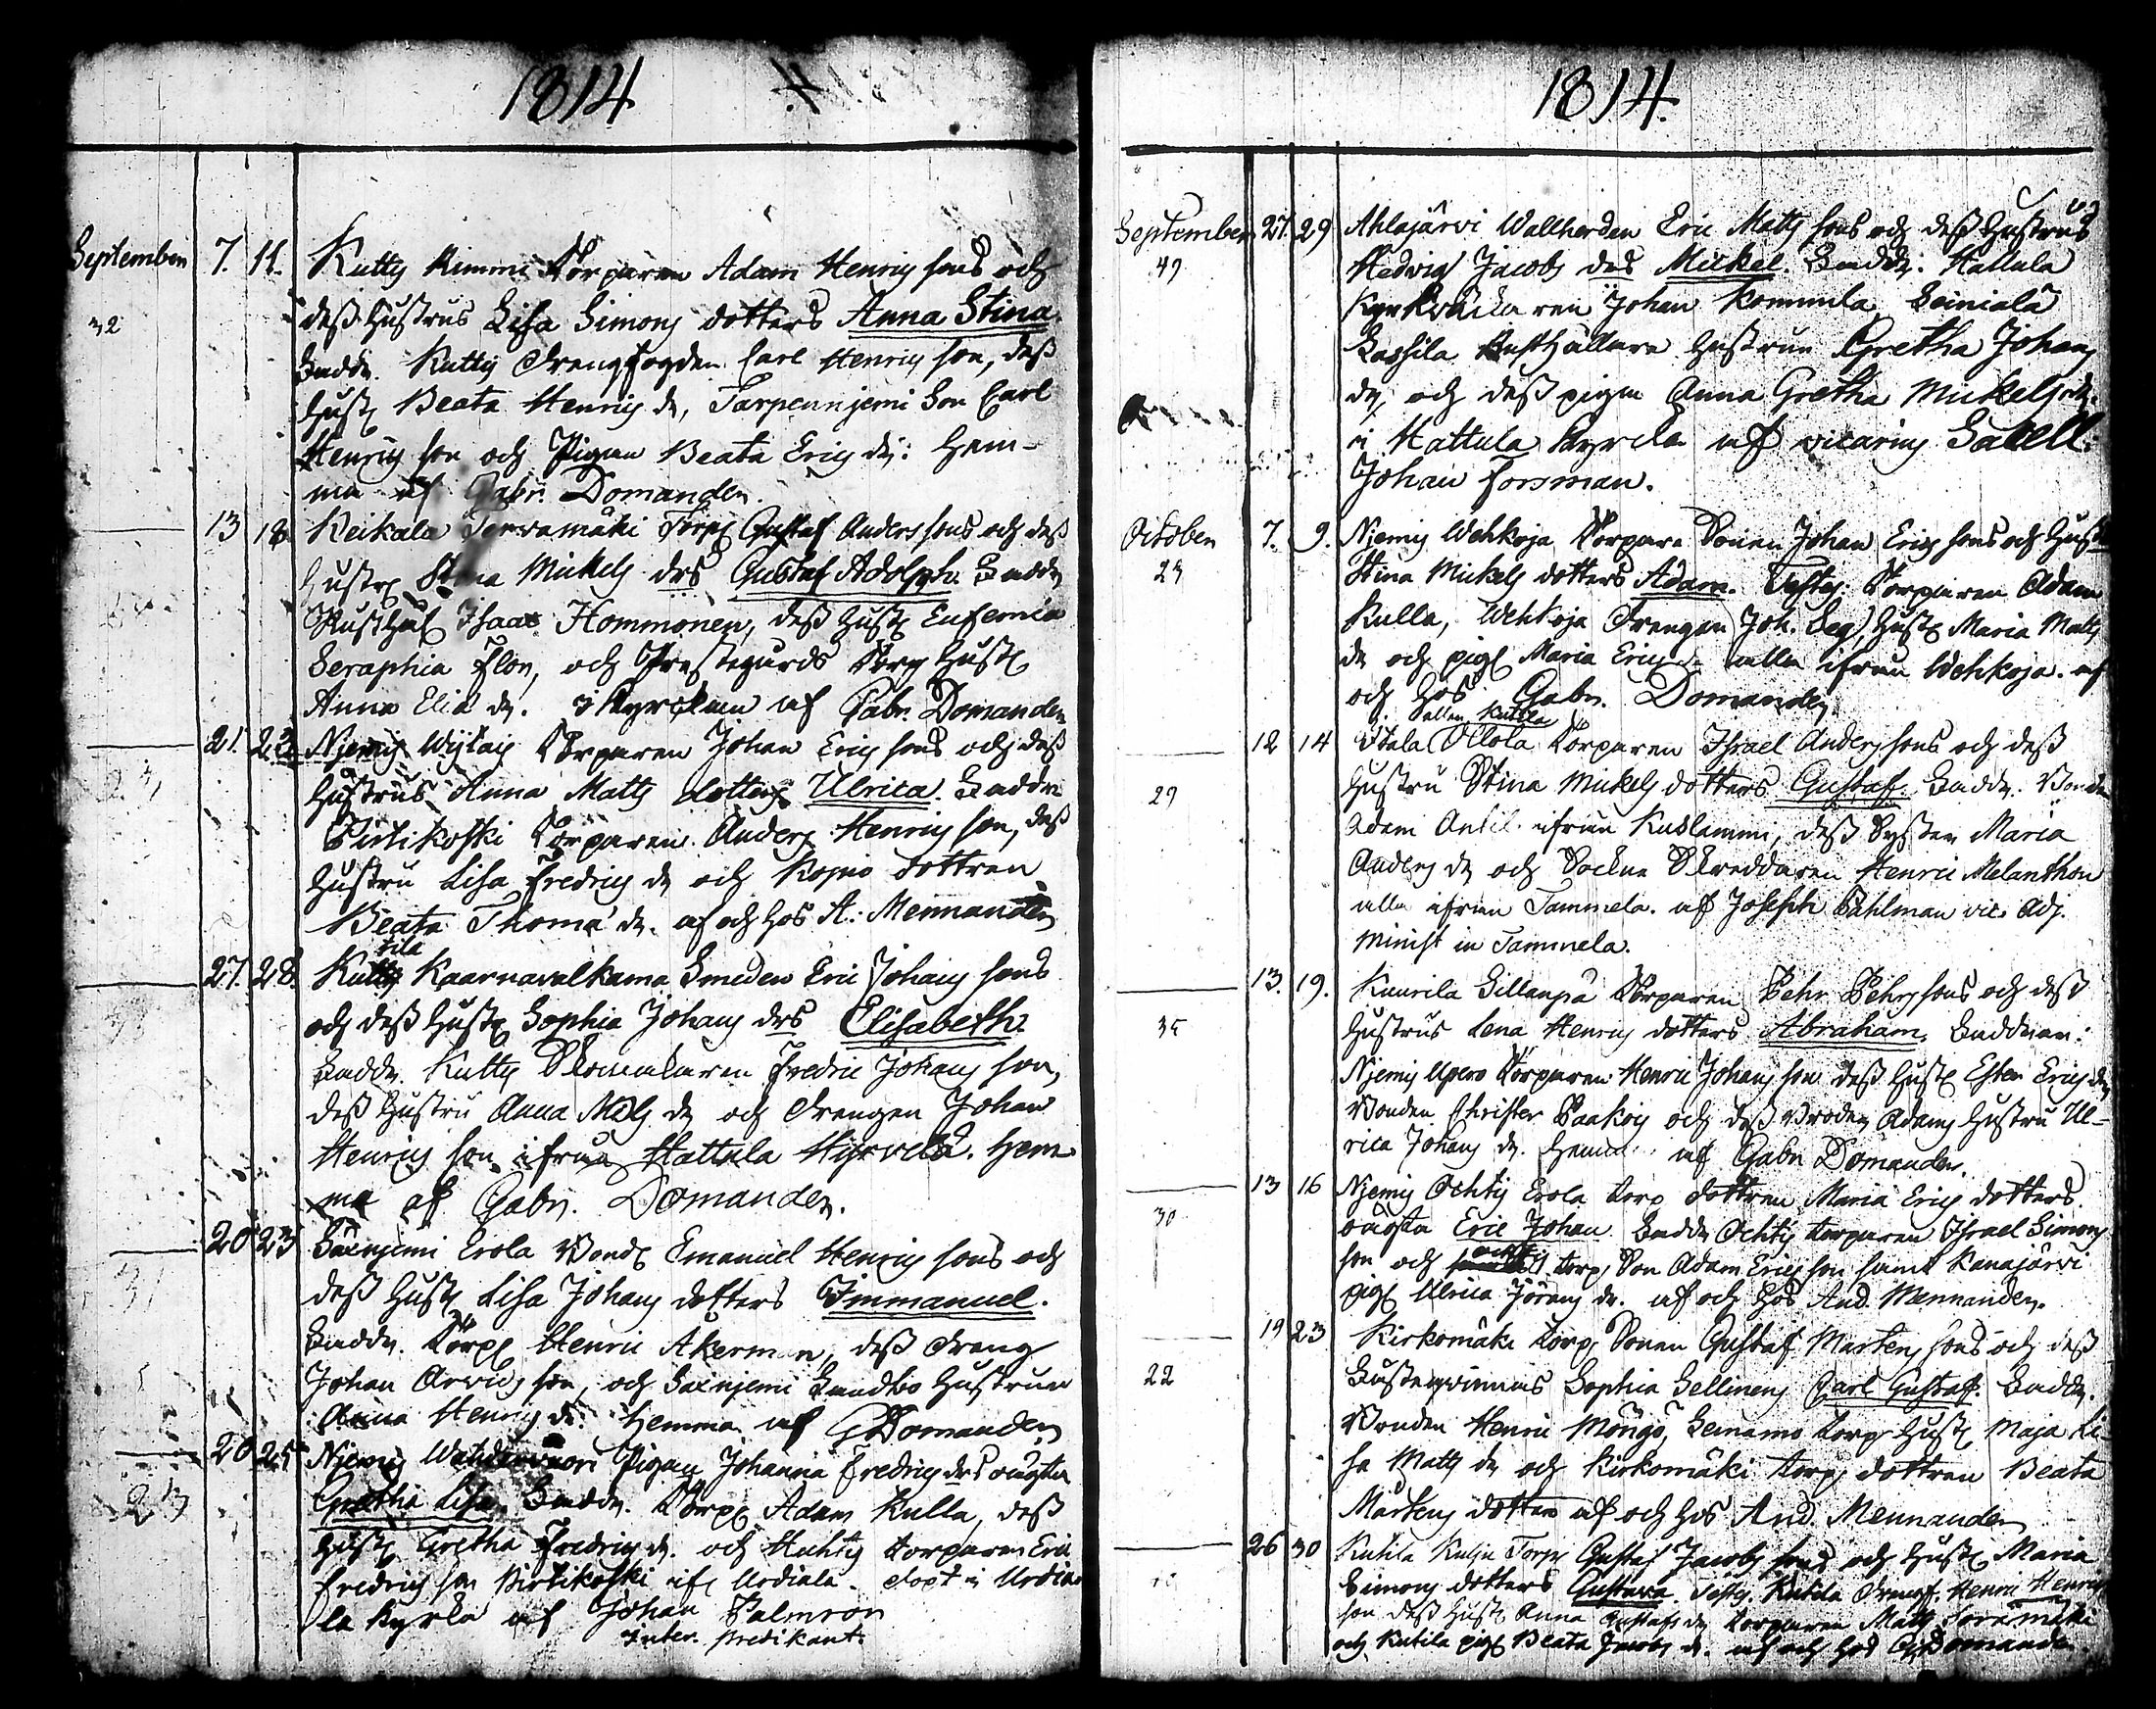 1814
September 7. 11. Kutty Rimmi Torparen Adam Henrics sons och
32 dess Hustrus Lisa Simons dotters Anna Stina.
Fadd. Kutty Drengfogden Carl Henrics son, dess
Hust. Beata Henrics d., Tarpennjemi Son Carl
Henrics son och Pigan Beata Erics d.: hem-
ma af Gabr. Domander.
13 18 Keikala Tervamäki Torp. Gustaf Anders sons och dess
Hustr. Stina Mickels drs Gustaf Adolph. Fadd.
Rusth. Isaac Hommonen, dess Hust. Eufemia
Seraphia Flor, och Prestegårds Torp. Hust.
Anna Elia d. i Kyrckan af Gabr. Domander
21. 23 Njemis Torparen Johan Erics sons och dess
Hustrus Anna Matts dotters Ulrica. Faddr.
Pirtikoski Torparen Anders Henrics son, dess
Hustru Lisa Fredrics d. och Kojvio dottren
Beata Thoma d. af och hos A. Mennander
27. 28. Kuttila Kaarnavalkama Smeden Eric Johans sons
och dess Hust. Sophia Johans drs Elisabeth.
Fadd. Kutty Skomakaren Fredric Johans son,
dess Hustru Anna Nils d. och Drengen Johan
Henrics son ifrån Hattula Hyrvelä. hem-
ma af Gabr. Domander.
20 23 Saxnjemi Erola Bond. Emanuel Henrics sons och
31 dess Hust. Lisa Johans dotters Immanuel.
Fadd. Torp. Henric Akerman, dess Dreng
Johan Arvids son, och Saxnjemi Landbo Hustrun
Anna Henrics d. Hemma af G Domander
20 25 Njemis Pigan Johanna Fredrics drs oägta
23 Gretha Lisa. Fadd. Torp. Adam Kulla, dess
Hust. Gretha Fredrics d. och Huhtis torparen Eric
Fredrics son Pirtikoski if. Urdiala. döpt i Urdia-
la Kyrka af Johan Palmron
inter. predikant.
1814.
September 27. 29 Ahlajärvi Wallherden Eric Matts sons och dess Hustrus
49 Hedvig Jacobs drs Mickel. Faddr. Hattula
Kyrkväcktaren Johan Kommila, Leiniälä
Lassila Rusthållare Hustrun Gretha Johans
d., och dess pigan Anna Gretha Mickels d.
i Hattula Kyrcka af vicarius Sacell.
Johan Forsman.
October 7. 9. Njemis Wehkoja Torpare Sonen Johan Erics sons och Hust.
23 Stina Mickels dotters Adam. Testes: Torparen Adam
Kulla, Wehkoja Drengen Joh. Seg, Hust. Maria Matts
d. och pig. Maria Erics d. alla ifrån Wehkoja. af
och hos Gabr. Domander.
12 14 Itala Ollola Torparen Israel Anders sons och dess
29 Hustru Stina Mickels dotters Gustaf. Fadd. Bonden
Adam Antil. ifrån Kuslammi, dess Syster Maria
Anders d. och Sockne Skreddaren Henric Melanthon
alla ifrån Tammela. af Joseph Pahlman vic. Adj.
Minist in Tammela.
13. 19. Kuurila Sillanpä Torparen Pehr Pehrs sons och dess
35 Hustrus Lena Henrics dotters Abraham. Faddran:
Njemis Upero Torparen Henric Johans son dess Hust. Ester Erics d.
Bonden Christer Paakois och dess Broder Adams Hustru Ul-
rica Johans d. Hemma af Gabr Domander.
13 16 Njemis Ochtis Erola torp dottren Maria Erics dotters
30 oägta Eric Johan. Fadd. Ochtis torparen Israel Simons
son och torp. Son Adam Erics son samt Kanajärvi
pig. Ulrica Jörans d. af och hos And. Mennander.
19 23 Kirkomäki torp. Sonen Gustaf Mårtens sons och dess
22 Sophia Sellmens Carl Gustaf. Fadd.
Bonden Henric Möngö, Leinamo torp Hust. Maja Li-
sa Matts d. och Kirkomäki torp. dottren Beata
Mårtens dotter af och hos And. Mennander
26 30 Kutila Kulju Torp. Gustaf Jacobs sons och Hust. Maria
Simons dotters Gustava. Test. Kutila Drengf. Henric Henrics
son dess Hust. Anna Gustafs d. torparen Matts Soramäki
och Kutila pig. Beata Jacobs d. af och hos G Domander